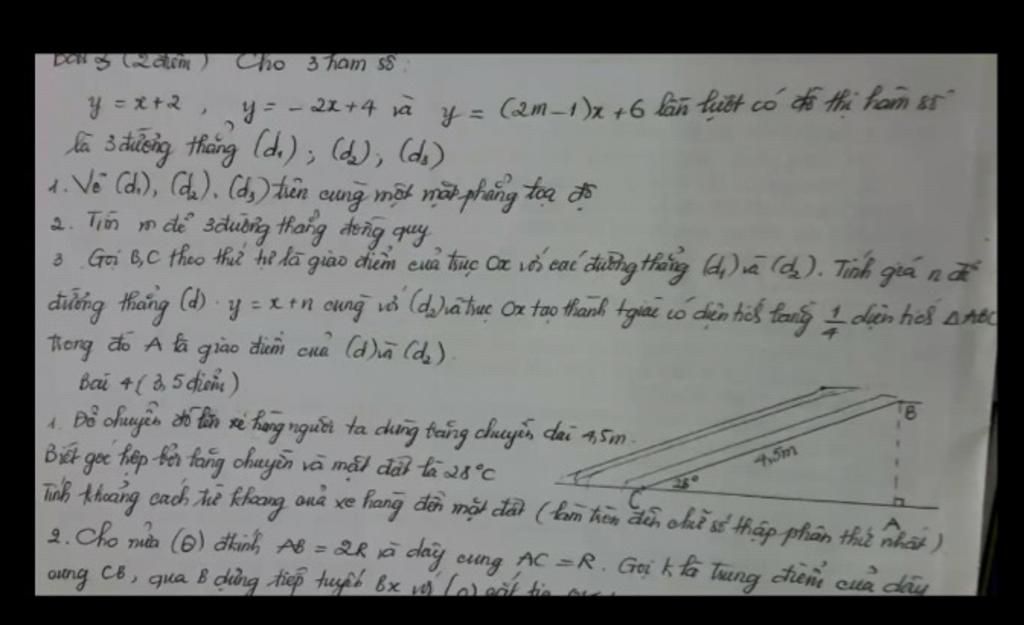 Bài 3 (2 điểm) Cho 3 hàm số:
y = x+2 , y = -2x+4 và y = (2m-1)x+6 lần lượt có đồ thị hàm số
là 3 đường thẳng (d₁); (d₂); (d₃)
1. Vẽ (d₁), (d₂), (d₃) trên cùng một mặt phẳng toạ độ
2. Tìm m để 3 đường thẳng đồng quy
3 Gọi B, C theo thứ tự là giao điểm của trục Ox với các đường thẳng (d₁) và (d₂). Tính giá n để
đường thẳng (d) . y = x+n cùng với (d₂) và trục Ox tạo thành t.giác có diện tích bằng 1/4 diện tích ΔABC
trong đó A là giao điểm của (d) và (d₂).
Bài 4 (3,5 điểm)
1. Để chuyển đồ lên xe hàng người ta dùng băng chuyền dài 4,5m.
Biết góc hợp bởi băng chuyền và mặt đất là 28°C
Tính khoảng cách từ khoang của xe hàng đến mặt đất (làm tròn đến chữ số thập phân thứ nhất)
B
4,5m
28°
C
A
2. Cho nửa (O) đkính AB = 2R và dây cung AC = R. Gọi K là trung điểm của dây
cung CB, qua B dựng tiếp tuyến Bx với (O) cắt tia